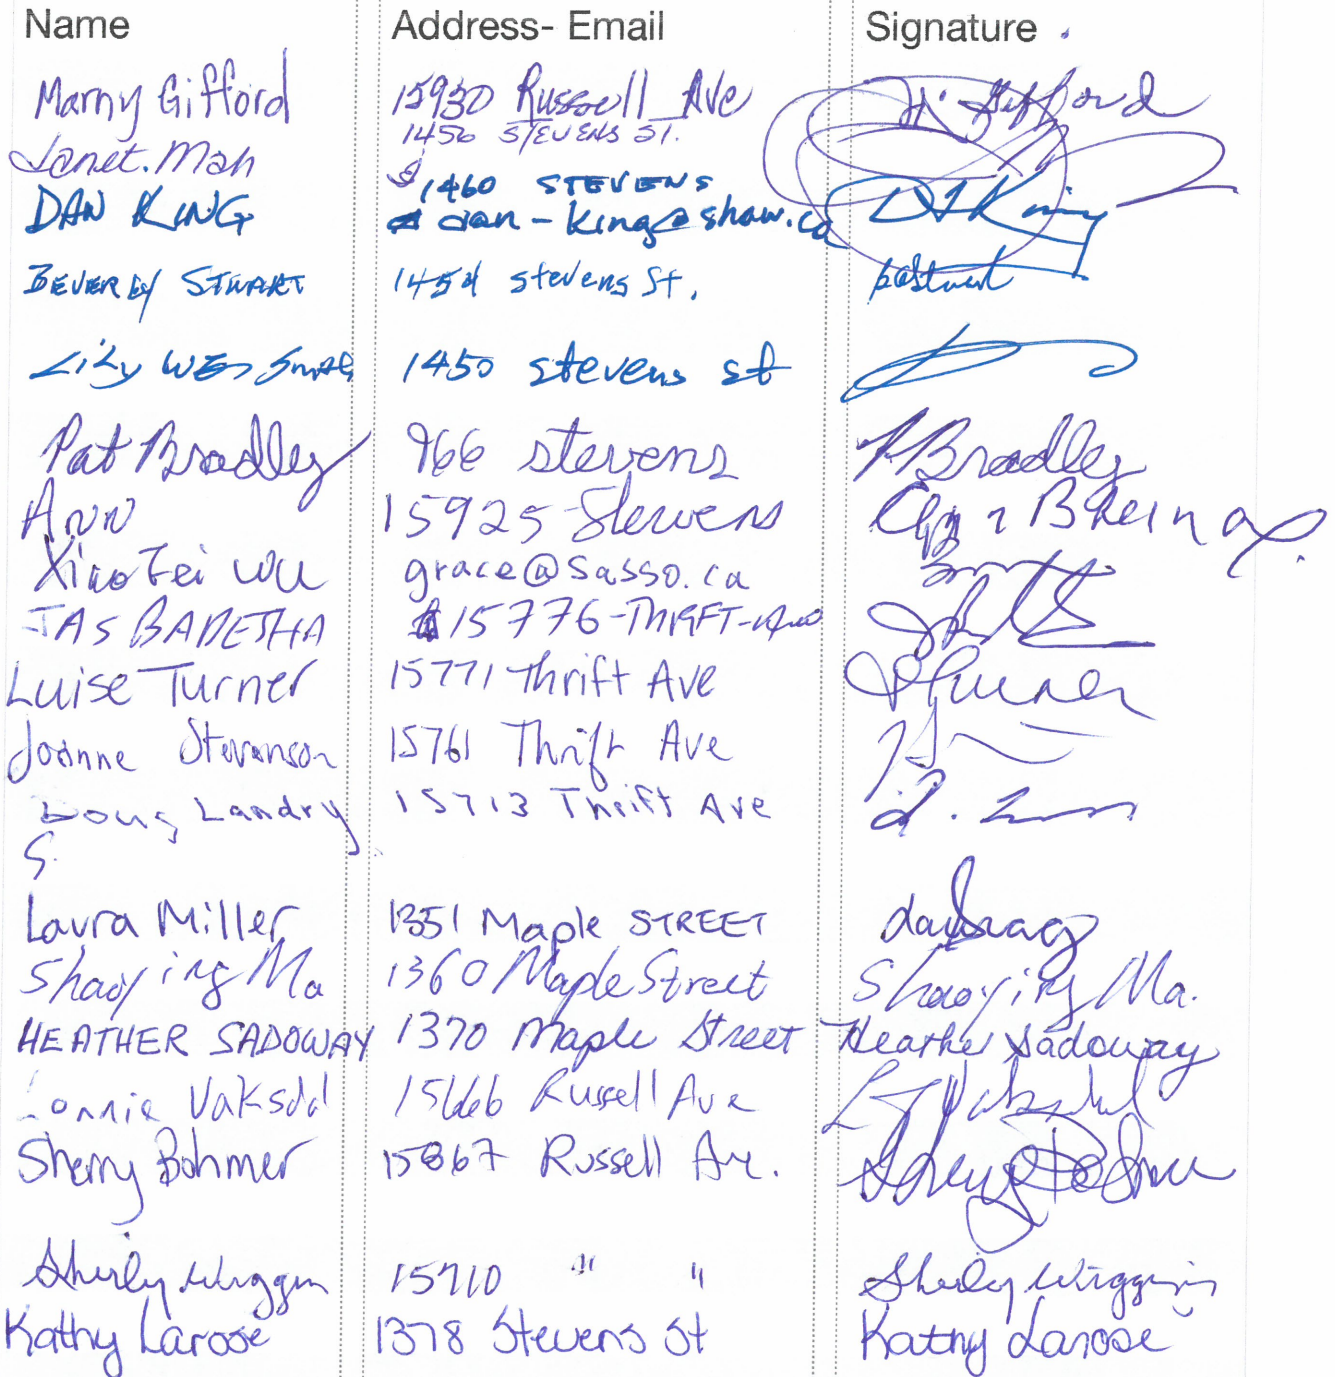 Name Address- Email Signature
Marny Gifford 15930 Russell Ave Gifford
Janet. Mah 1456 STEVENS ST.
DAN KING 1460 STEVENS
dan-king@shaw.ca King
BEVERLY STWART 1454 stevens St.
Lily 1450 stevens st
Pat Bradley 966 stevens P Bradley
Ann 15925 Stevens
Xiao Fei Wu grace@sasso.ca
JAS BADESHA 15776-THRIFT-
Luise Turner 15771 Thrift Ave Turner
Joanne Stevenson 15761 Thrift Ave
Doug Landry 15713 Thrift Ave D.
S.
Laura Miller 1351 Maple STREET
Shaoying Ma 1360 Maple Street Shaoying Ma.
HEATHER SADOWAY 1370 Maple Street Heather Sadoway
Lonnie Vaksdal 15666 Russell Ave
Sherry Bohmer 15867 Russell Ave.
Shirly Wiggin 15710 " " Shirly Wiggins
Kathy Larose 1378 Stevens St Kathy Larose